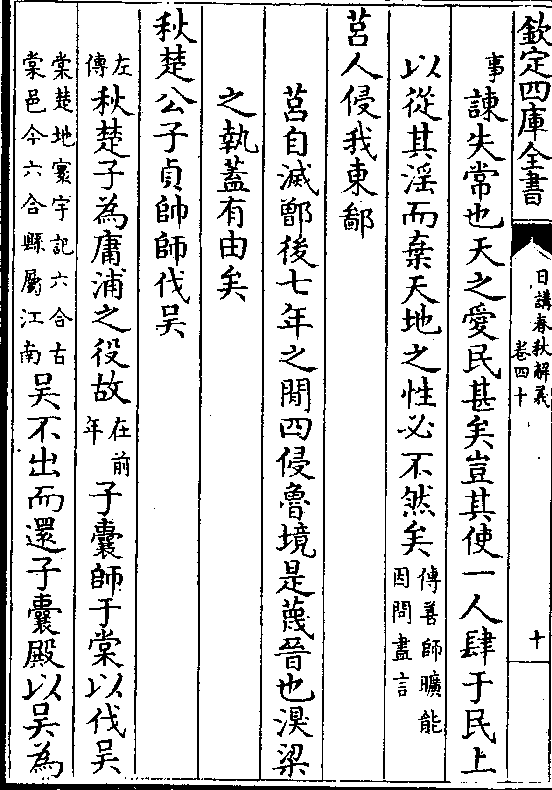 欽定四庫全書
日講春秋解義
卷四十
十
事諫失常也天之愛民甚矣豈其使一人肆于民上
以從其淫而棄天地之性必不然矣傳善師曠能因問盡言
莒人侵我東鄙
莒自滅鄫後七年之間四侵魯境是蔑晉也湨梁
之執蓋有由矣
秋楚公子貞帥師伐吳
左傳秋楚子為庸浦之役故在前年子囊師于棠以伐吳
棠楚地寰宇記六合古棠邑今六合縣屬江南吳不出而還子囊殿以吳為